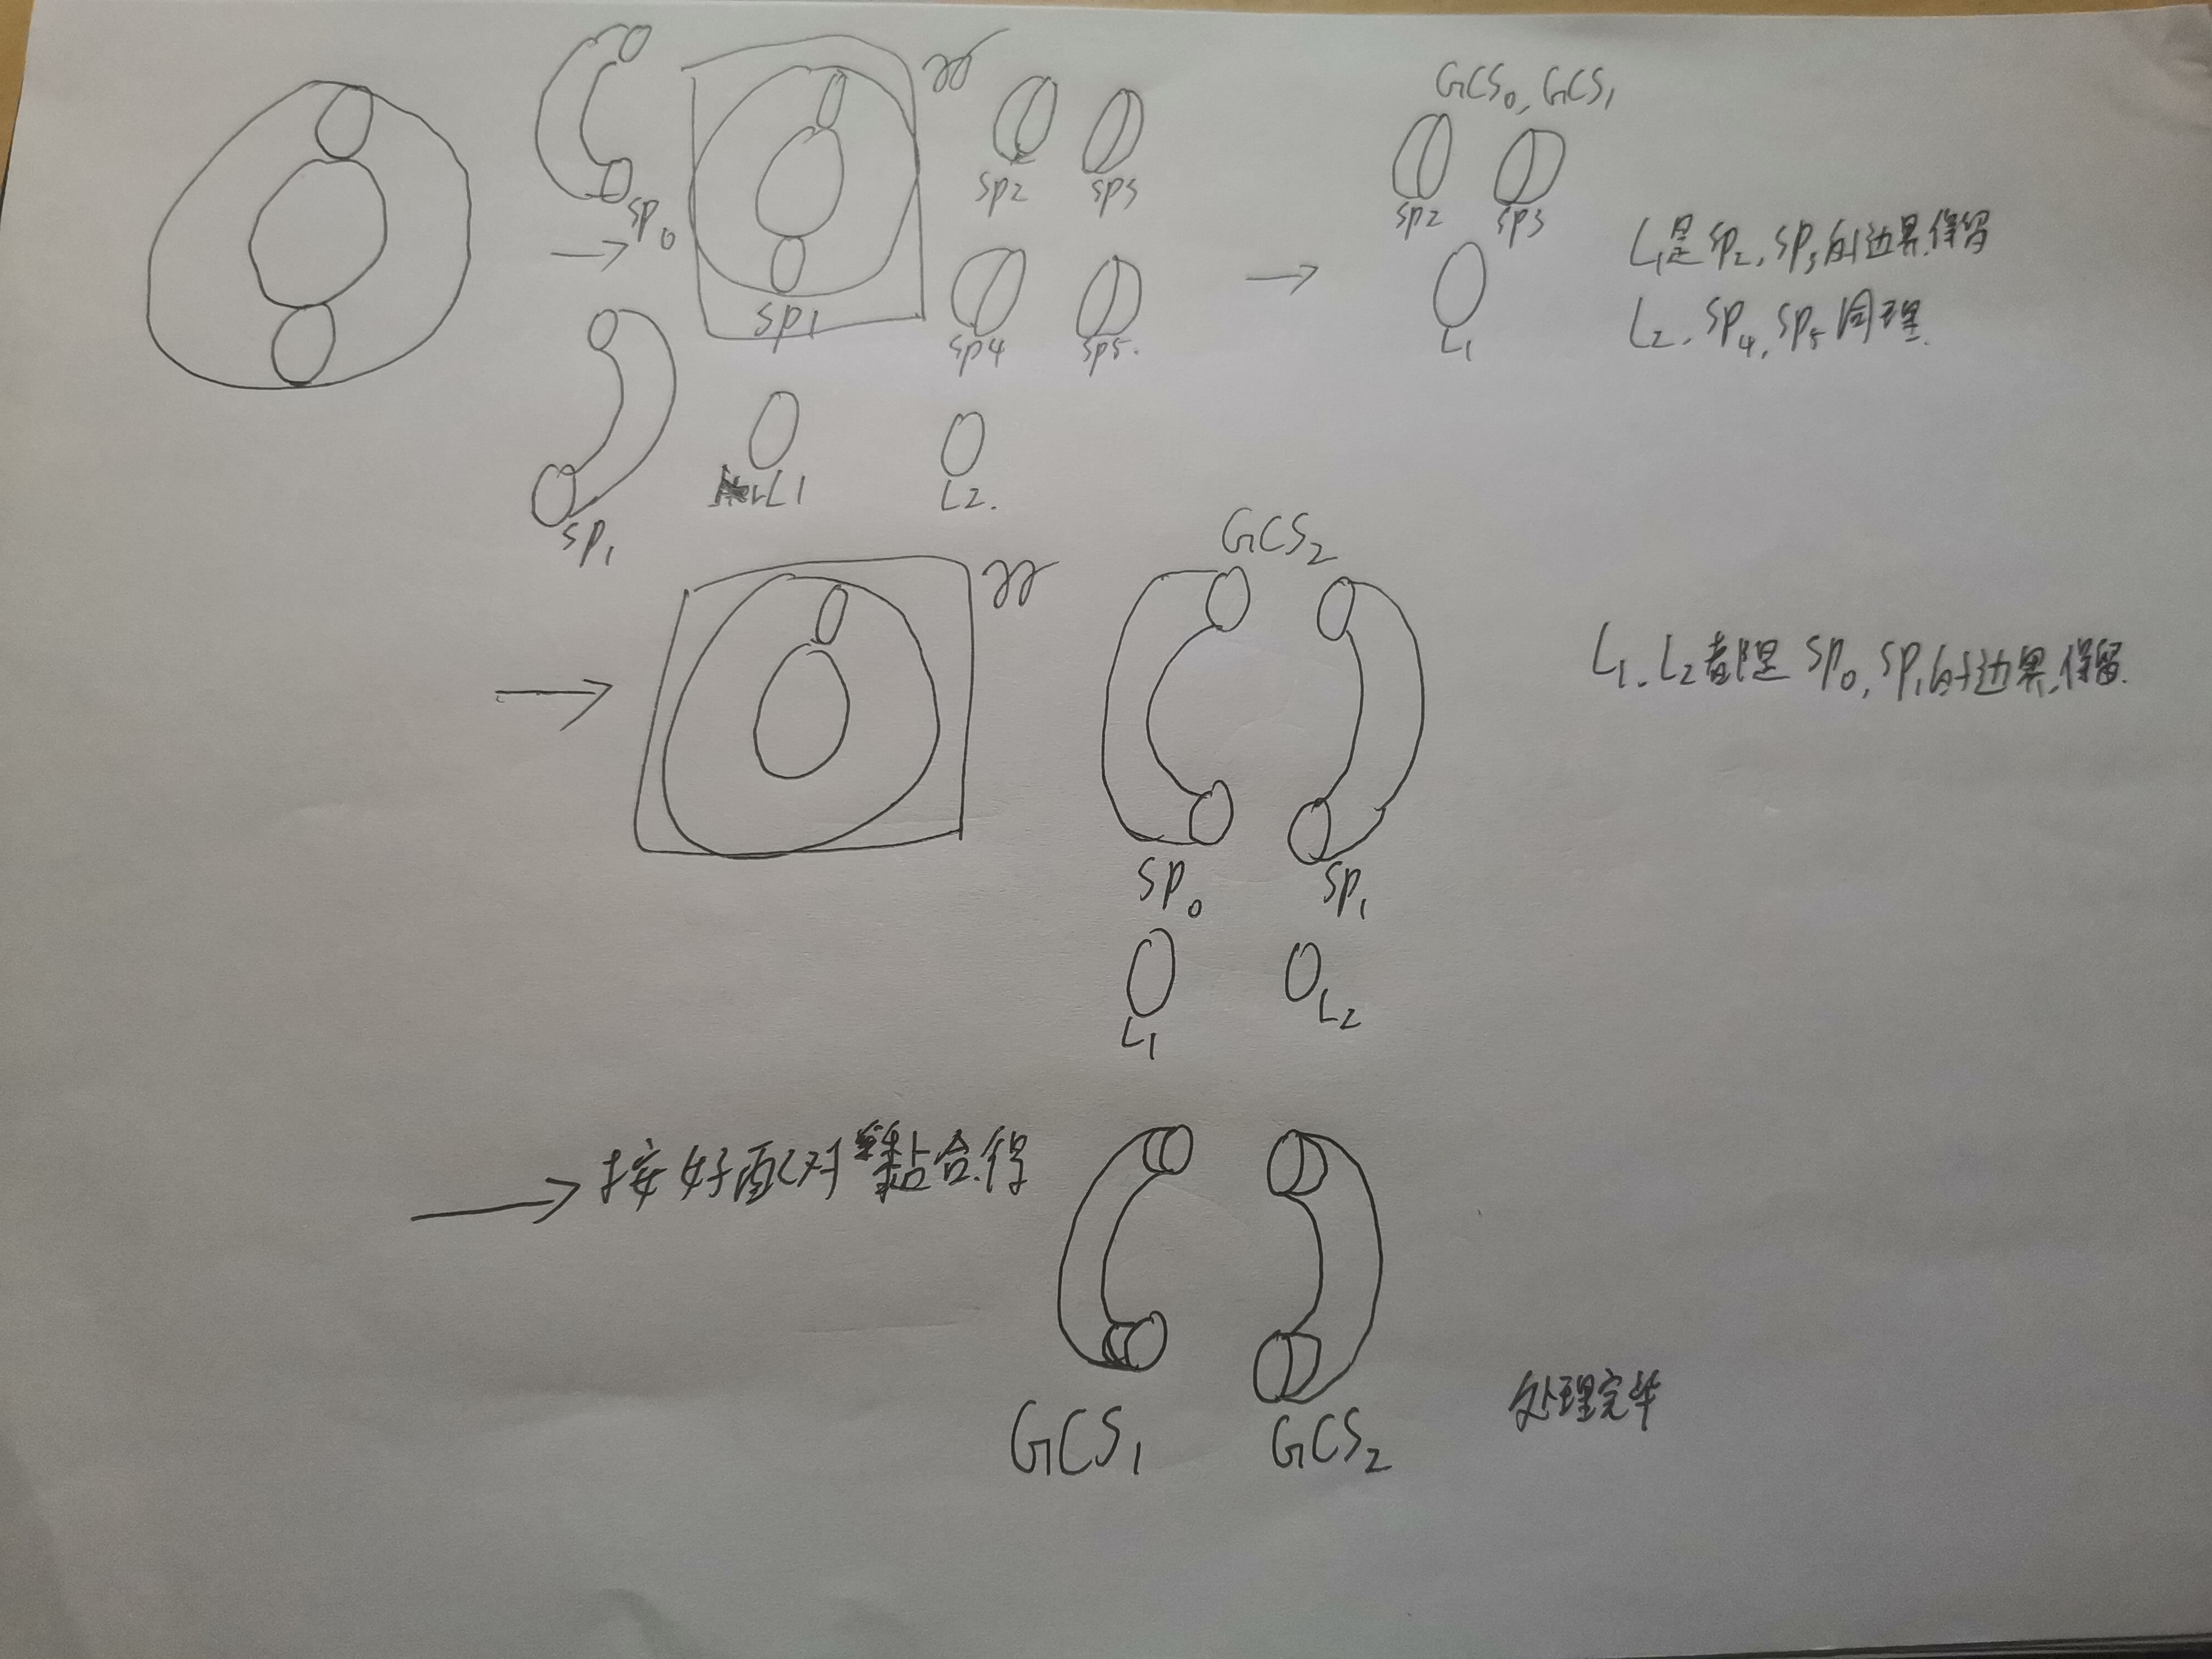 GCS₀, GCS₁
SP₀
SP₁
SP₂
SP₃
SP₄
SP₅.
SP₁
L₁
L₂.
SP₂
SP₃
L₁
L₁是SP₂, SP₃的边界.保留
L₂, SP₄, SP₅同理.
GCS₂
SP₀
SP₁
L₁
L₂
L₁, L₂都是SP₀, SP₁的边界,保留.
按好配对黏合.得
GCS₁
GCS₂
处理完毕